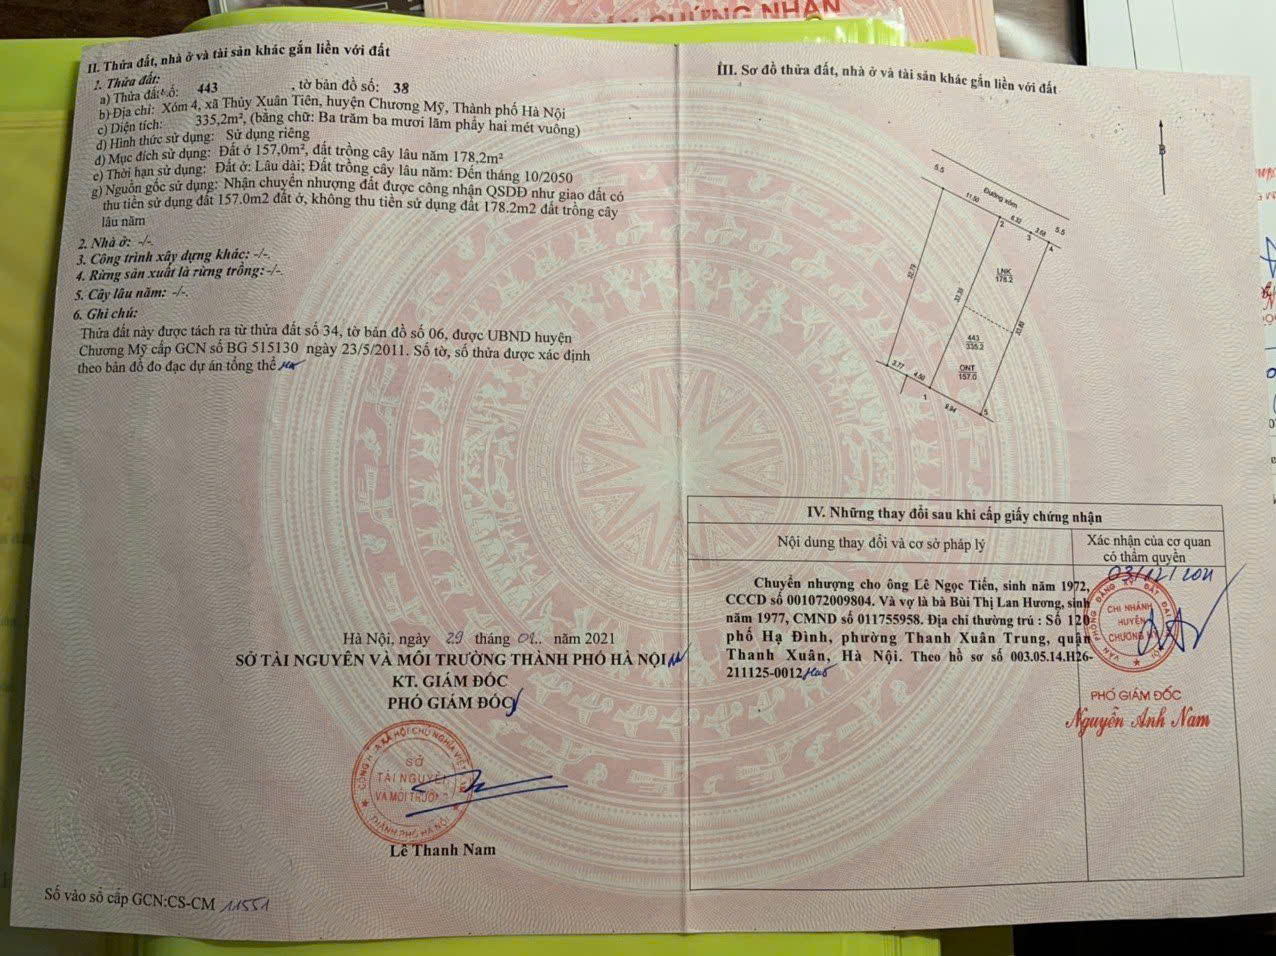 GIẤY CHỨNG NHẬN
II. Thửa đất, nhà ở và tài sản khác gắn liền với đất
1. Thửa đất:
a) Thửa đất số: 443 , tờ bản đồ số: 38
b) Địa chỉ: Xóm 4, xã Thủy Xuân Tiên, huyện Chương Mỹ, Thành phố Hà Nội
c) Diện tích: 335,2m², (bằng chữ: Ba trăm ba mươi lăm phẩy hai mét vuông)
d) Hình thức sử dụng: Sử dụng riêng
đ) Mục đích sử dụng: Đất ở 157,0m², đất trồng cây lâu năm 178,2m²
e) Thời hạn sử dụng: Đất ở: Lâu dài; Đất trồng cây lâu năm: Đến tháng 10/2050
g) Nguồn gốc sử dụng: Nhận chuyển nhượng đất được công nhận QSDĐ như giao đất có
thu tiền sử dụng đất 157.0m2 đất ở, không thu tiền sử dụng đất 178.2m2 đất trồng cây
lâu năm
2. Nhà ở: -/-.
3. Công trình xây dựng khác: -/-.
4. Rừng sản xuất là rừng trồng:-/-.
5. Cây lâu năm: -/-.
6. Ghi chú:
Thửa đất này được tách ra từ thửa đất số 34, tờ bản đồ số 06, được UBND huyện
Chương Mỹ cấp GCN số BG 515130 ngày 23/5/2011. Số tờ, số thửa được xác định
theo bản đồ đo đạc dự án tổng thể
Hà Nội, ngày 29 tháng 01.. năm 2021
SỞ TÀI NGUYÊN VÀ MÔI TRƯỜNG THÀNH PHỐ HÀ NỘI
KT. GIÁM ĐỐC
PHÓ GIÁM ĐỐC
SỞ
TÀI NGUYÊN
VÀ MÔI TRƯỜNG
THÀNH PHỐ HÀ NỘI
Lê Thanh Nam
Số vào sổ cấp GCN:CS-CM 11551
III. Sơ đồ thửa đất, nhà ở và tài sản khác gắn liền với đất
B
5.5
Đường xóm
11.50
6.32
3.58
5.5
2
3
4
LNK
178.2
32.79
33.35
33.88
443
335.2
ONT
157.0
3.77
4.50
1
9.94
5
IV. Những thay đổi sau khi cấp giấy chứng nhận
Nội dung thay đổi và cơ sở pháp lý
Xác nhận của cơ quan
có thẩm quyền
Chuyển nhượng cho ông Lê Ngọc Tiến, sinh năm 1972,
CCCD số 001072009804. Và vợ là bà Bùi Thị Lan Hương, sinh
năm 1977, CMND số 011755958. Địa chỉ thường trú : Số 120
phố Hạ Đình, phường Thanh Xuân Trung, quận
Thanh Xuân, Hà Nội. Theo hồ sơ số 003.05.14.H26-
211125-0012
03/12/2021
VĂN PHÒNG ĐĂNG KÝ ĐẤT ĐAI
CHI NHÁNH
HUYỆN
CHƯƠNG MỸ
PHÓ GIÁM ĐỐC
Nguyễn Anh Nam